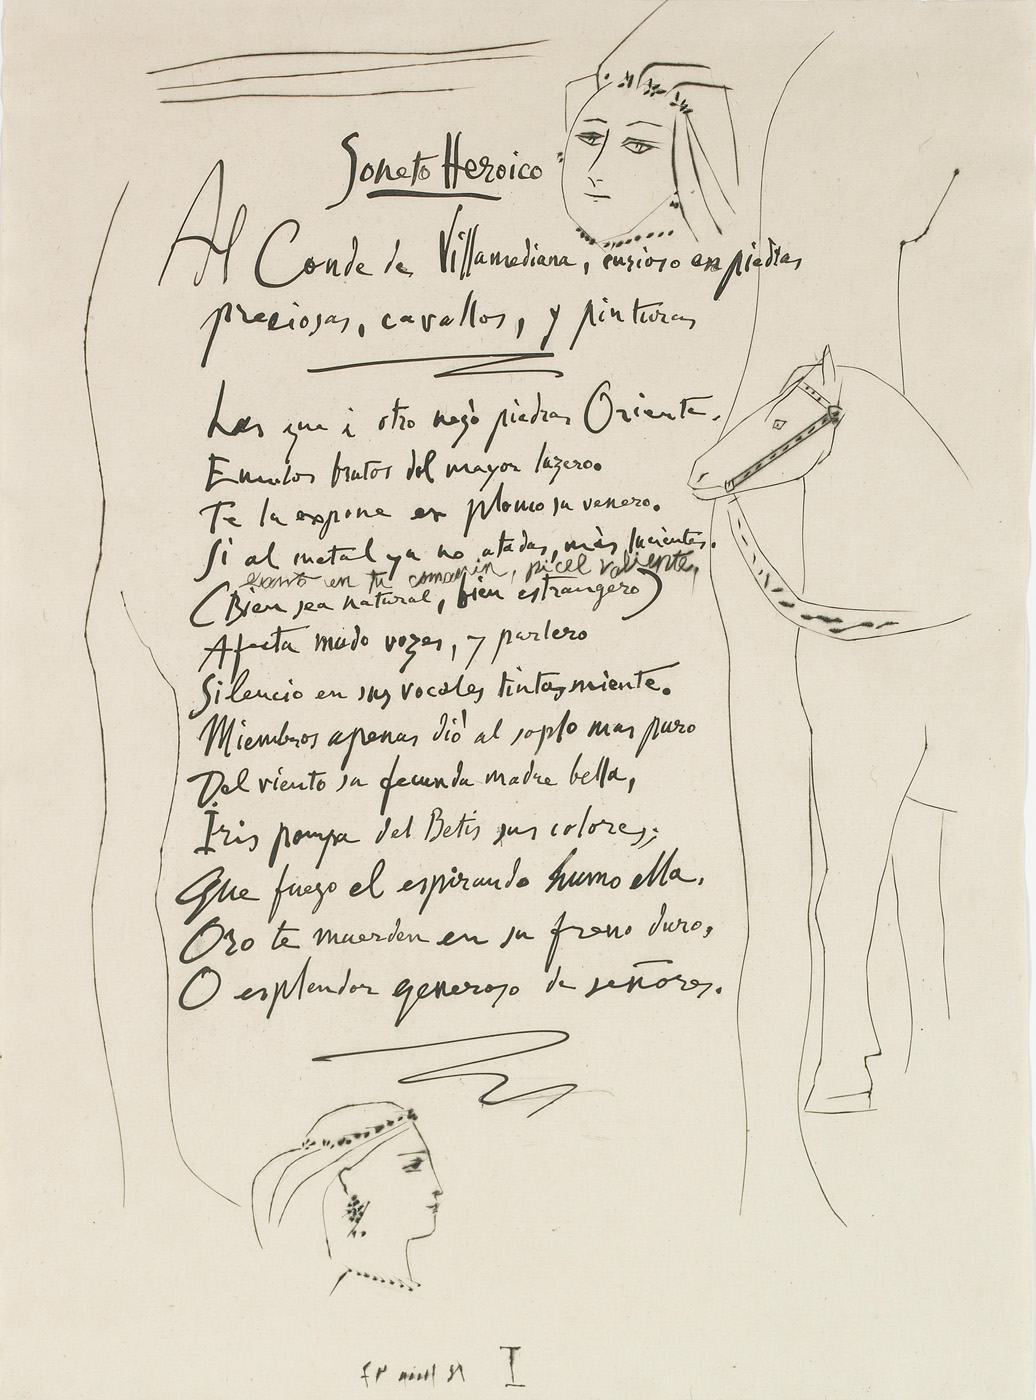 Soneto Heroico
Al Conde de Villamediana, curioso en piedras
preciosas, cavallos, y pinturas
Las que à otro negò piedras Oriente,
Emulos brutos del mayor luzero.
Te la expone en plomo su venero.
Si al metal ya no atadas, màs lucientes.
cuanto en tu camarin, picel valiente,
(Bien sea natural, bien estrangero)
Afecta mudo vozes, y parlero
Silencio en sus vocales tintas miente.
Miembros apenas diò al soplo mas puro
Del viento su fecunda madre bella,
Iris pompa del Betis sus colores;
Que fuego el espirando humo ella,
Oro te muerden en su freno duro,
O esplendor generoso de señores.
I